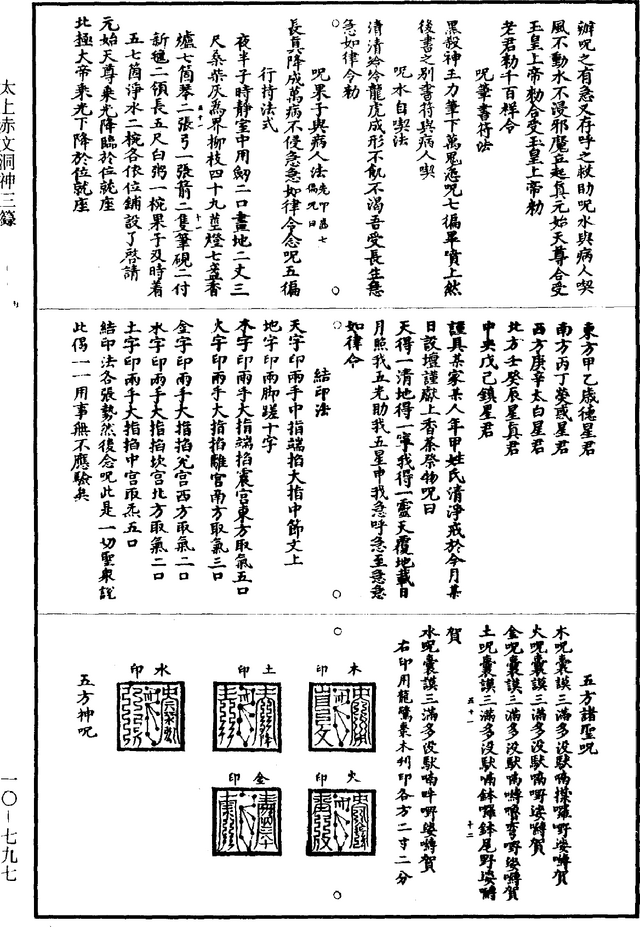 辦呪之有急又存呼之杖助呪水與病人喫
風不動水不漫邪魔立起真元始天尊合受
玉皇上帝勑合受玉皇上帝勑
老君勑千百祥令
呪筆書符法
黑殺神王力筆下萬鬼愁呪七徧畢噴上然
後書之別書符與病人喫
呪水自喫法
清清給冷龍虎成形不飢不渴吾受長生急
急如律令勑
呪果子與病人法 先甲為七徧呪曰
長真降成萬病不侵急急如律令念呪五徧
行持法式
夜半子時靜室中用劒二口畫地二丈三
尺桑柴灰為界柳枝四十九莖燈七盞香
五十一 十一
爐七箇琴二張弓一張箭二隻筆硯二付
新氊二領長五尺白粥一椀果子及時着
五七箇淨水一椀各依位鋪設了啓請
元始天尊乘光降臨於位就座
北極大帝乘光下降於位就座
東方甲乙歲德星君
南方丙丁熒惑星君
西方庚辛太白星君
北方壬癸辰星真君
中央戊己鎮星君
謹具某家某人年甲姓氏清淨戒於今月某
日設壇謹獻上香茶祭物呪曰
天得一清地得一寧我得一靈天覆地載日
月照我五光助我五星申我急呼急至急急
如律令
結印法
天字印兩手中指端掐大指中節文上
地字印兩脚蹉十字
木字印兩手大指端掐震宮東方取氣五口
火字印兩手大指掐離宮南方取氣三口
金字印兩手大指掐兊宮西方取氣二口
水字印兩手大指掐坎宮北方取氣二口
土字印兩手大指掐中宮取炁五口
結印法各張勢然後念呪此是一切聖衆說
此偈一一用事無不應驗矣
五方諸聖呪
木呪曩謨三滿多没馱喃揲囉野娑嚩賀
火呪曩謨三滿多没馱喃嘢娑嚩賀
金呪曩謨三滿多没馱喃嚩嚕彎野娑嚩賀
五十一 十二
土呪曩謨三滿多没馱喃鉢囉鉢尾野娑嚩
賀
水呪曩謨三滿多没馱喃吽嘢娑嚩賀
木印
火印
土印
金印
水印
右印用龍驚棗木刋印各方二寸二分
五方神呪
太上赤文洞神三籙
一〇-七九七